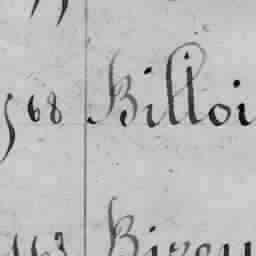 568 Billoi
163 Bizou